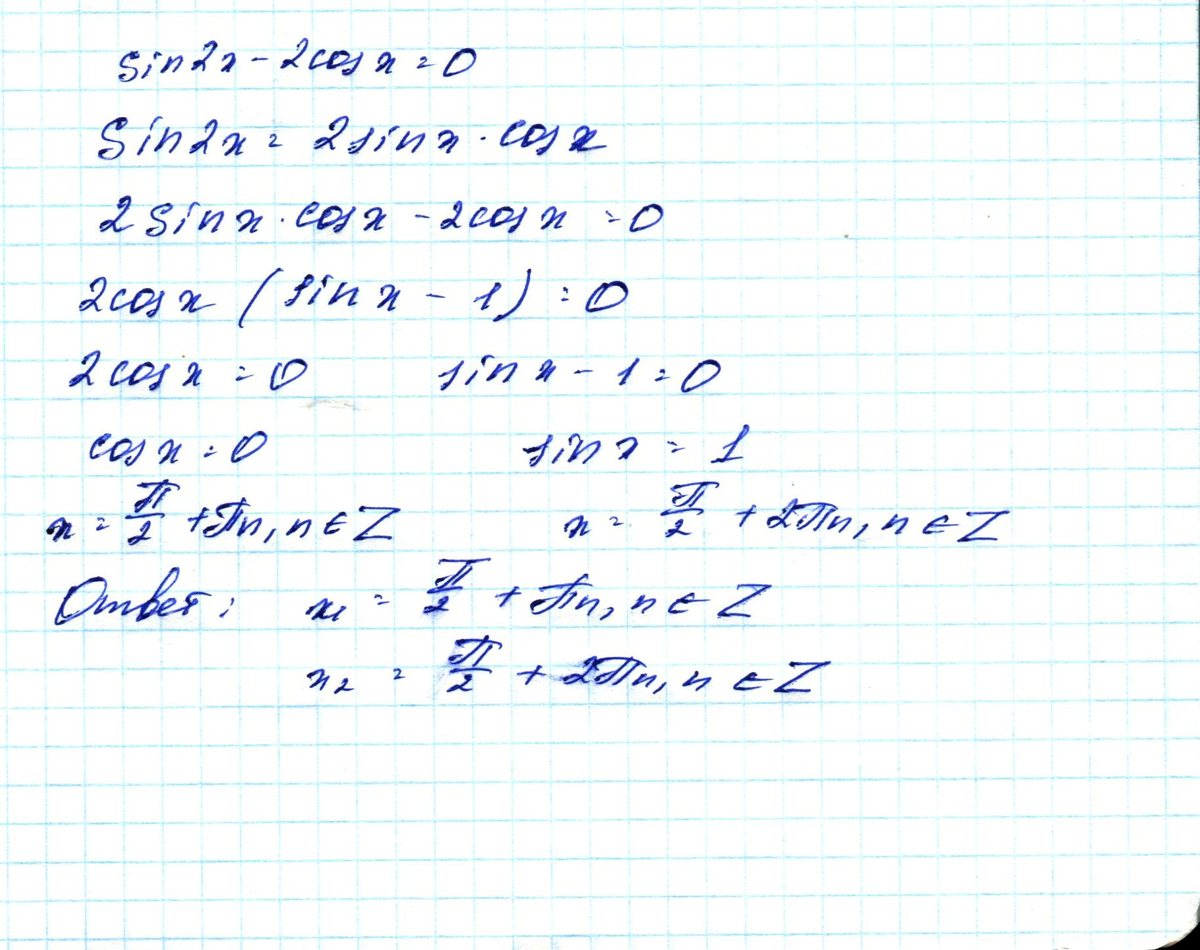 sin2x - 2cosx = 0
Sin2x = 2sinx · cosx
2 Sinx · cosx - 2cosx = 0
2cosx (sinx - 1) = 0
2cosx = 0 sinx - 1 = 0
cosx = 0 sinx = 1
x = π/2 + πn, n ∈ Z x = π/2 + 2πn, n ∈ Z
Ответ: x₁ = π/2 + πn, n ∈ Z
x₂ = π/2 + 2πn, n ∈ Z